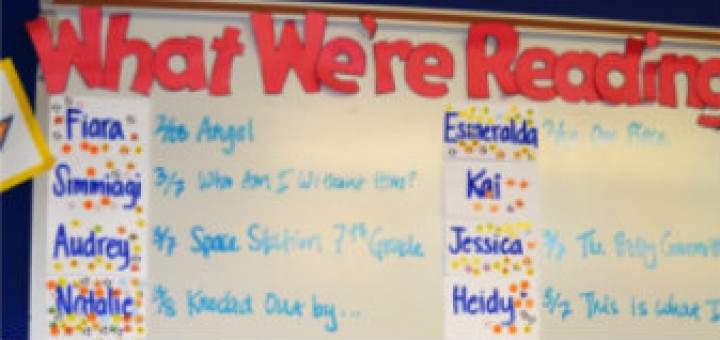 What We're Reading
Fiara 2/28 Angel
Simmiagi 3/7 Who Am I Without Him?
Audrey 3/7 Space Station 7th Grade
Natalie 3/8 Knocked Out by...
Esmeralda
Kai
Jessica 3/7 The
Heidy 3/7 This is what I